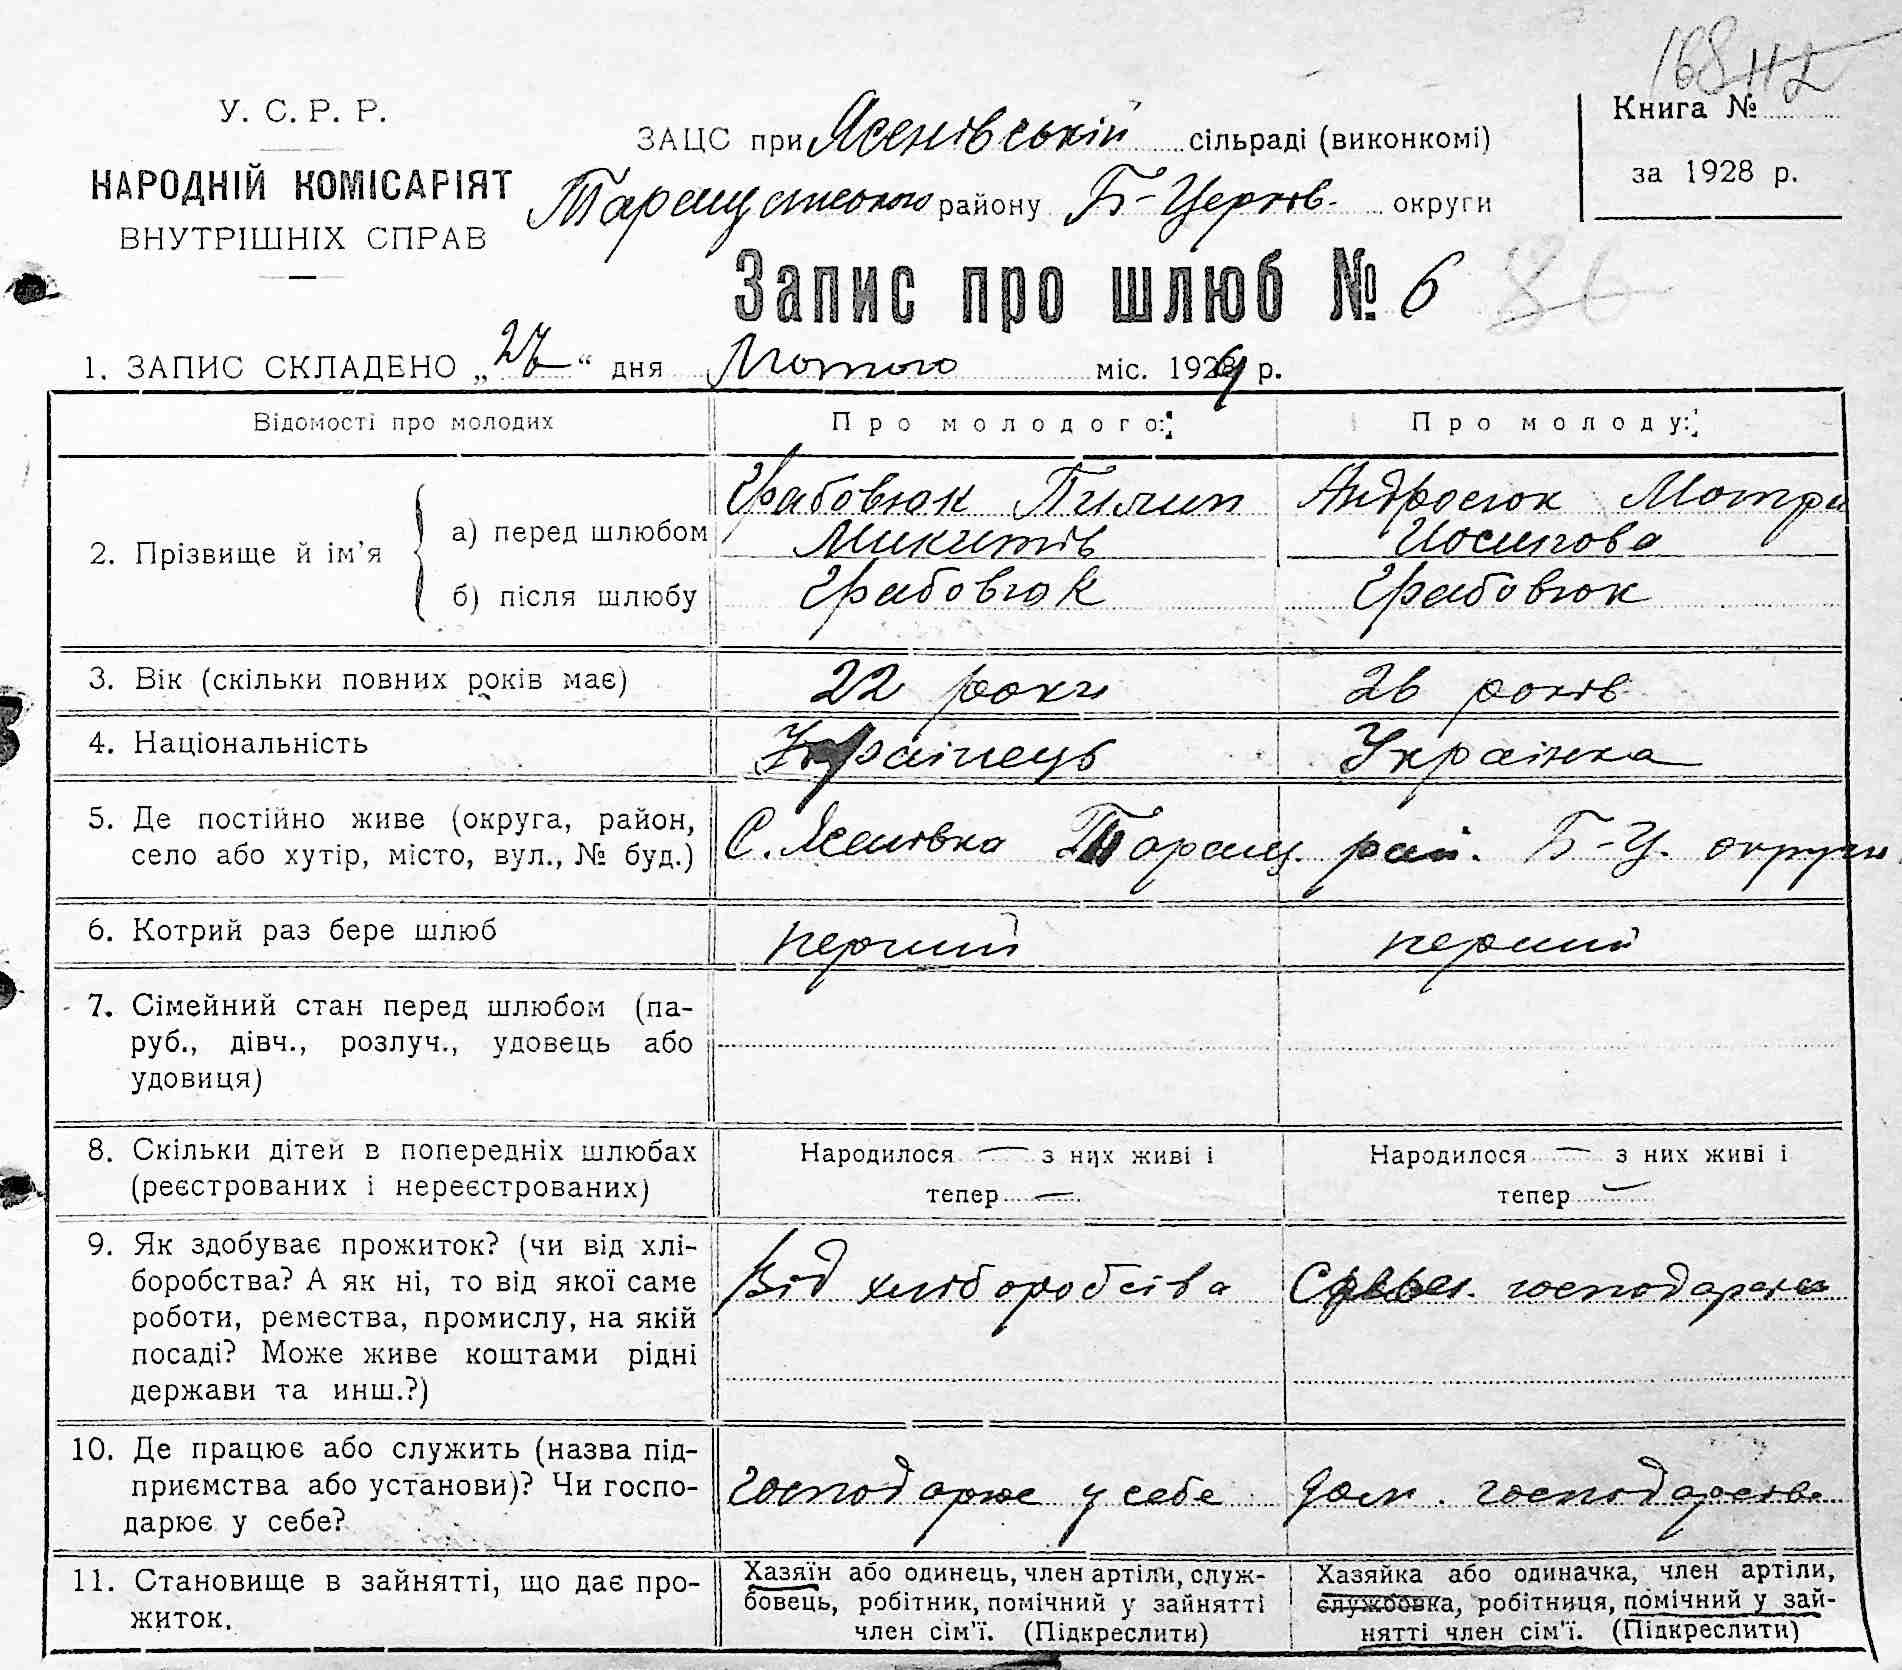 168 112
У. С. Р. Р.
НАРОДНІЙ КОМІСАРІЯТ
ВНУТРІШНІХ СПРАВ
ЗАЦС при Ясенівській сільраді (виконкомі)
Таращанського району Б-Церків. округи
Книга №
за 1928 р.
Запис про шлюб № 6
86
1. ЗАПИС СКЛАДЕНО „27“ дня Лютого міс. 1929 р.
Відомості про молодих
Про молодого:
Про молоду:
2. Прізвище й ім’я
а) перед шлюбом
Грабовюк Пилип
Микитів
Андросюк Мотря
Йосипова
б) після шлюбу
Грабовюк
Грабовюк
3. Вік (скільки повних років має)
22 роки
26 років
4. Національність
Українець
Українка
5. Де постійно живе (округа, район,
село або хутір, місто, вул., № буд.)
С. Ясенівка Таращ. рай. Б-Ц. округи
6. Котрий раз бере шлюб
перший
перший
7. Сімейний стан перед шлюбом (па-
руб., дівч., розлуч., удовець або
удовиця)
8. Скільки дітей в попередніх шлюбах
(реєстрованих і нереєстрованих)
Народилося — з них живі і
тепер —
Народилося — з них живі і
тепер —
9. Як здобуває прожиток? (чи від хлі-
боробства? А як ні, то від якої саме
роботи, ремества, промислу, на якій
посаді? Може живе коштами рідні
держави та инш.?)
Від хліборобсіва
господарства
10. Де працює або служить (назва під-
приємства або установи)? Чи госпо-
дарює у себе?
Господарює у себе
Дом. господарств.
11. Становище в зайнятті, що дає про-
житок.
Хазяїн або одинець, член артіли, служ-
бовець, робітник, помічний у зайнятті
член сім’ї. (Підкреслити)
Хазяйка або одиначка, член артіли,
службовка, робітниця, помічний у зай-
нятті член сім’ї. (Підкреслити)